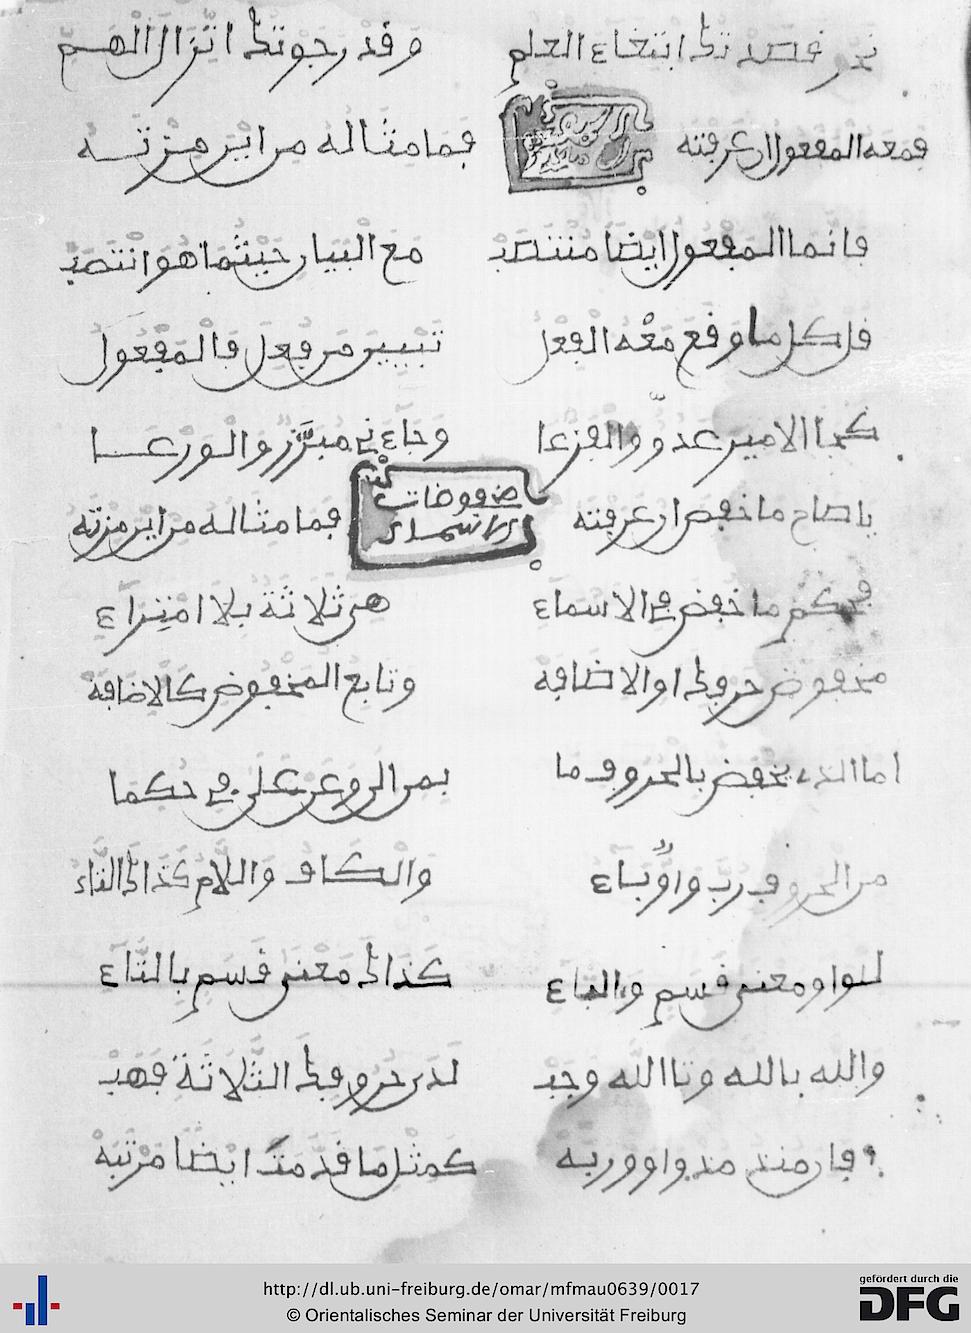 نحو قصدتك ابتغاء العلم وقد رجوتك انزال الهم
فمعه المفعول ان عرفته فما مثاله من اين مزته
فانما المفعول ايضا منتصب مع البيان حيثما هو انتصب
قل كل ما وقع معه الفعل تبيين من فعل فالمفعول
كجا الامير عدو والفزعا وجاءني مبرز والورعا
مخفوضات الاسماء
يا صاح ما خفض ان عرفته فما مثاله من اين مزته
فكم ما خفض في الاسماء هي ثلاثة بلا امتراء
مخفوض حرفك او الاضافه وتابع المخفوض كالاضافة
اما الذي يخفض بالحروف ما بمن الى وعن على في حكما
من الحروف رب واو باء والكاف واللام كذاك التاء
للواو معنى قسم والباء كذاك معنى قسم بالتاء
والله بالله وتا الله وجب لدى حروفك الثلاثة فهب
فان منذ مذ واو وربه كمثل ما قدمت ايضا مرتبه
http://dl.ub.uni-freiburg.de/omar/mfmau0639/0017
© Orientalisches Seminar der Universität Freiburg
gefördert durch die
DFG